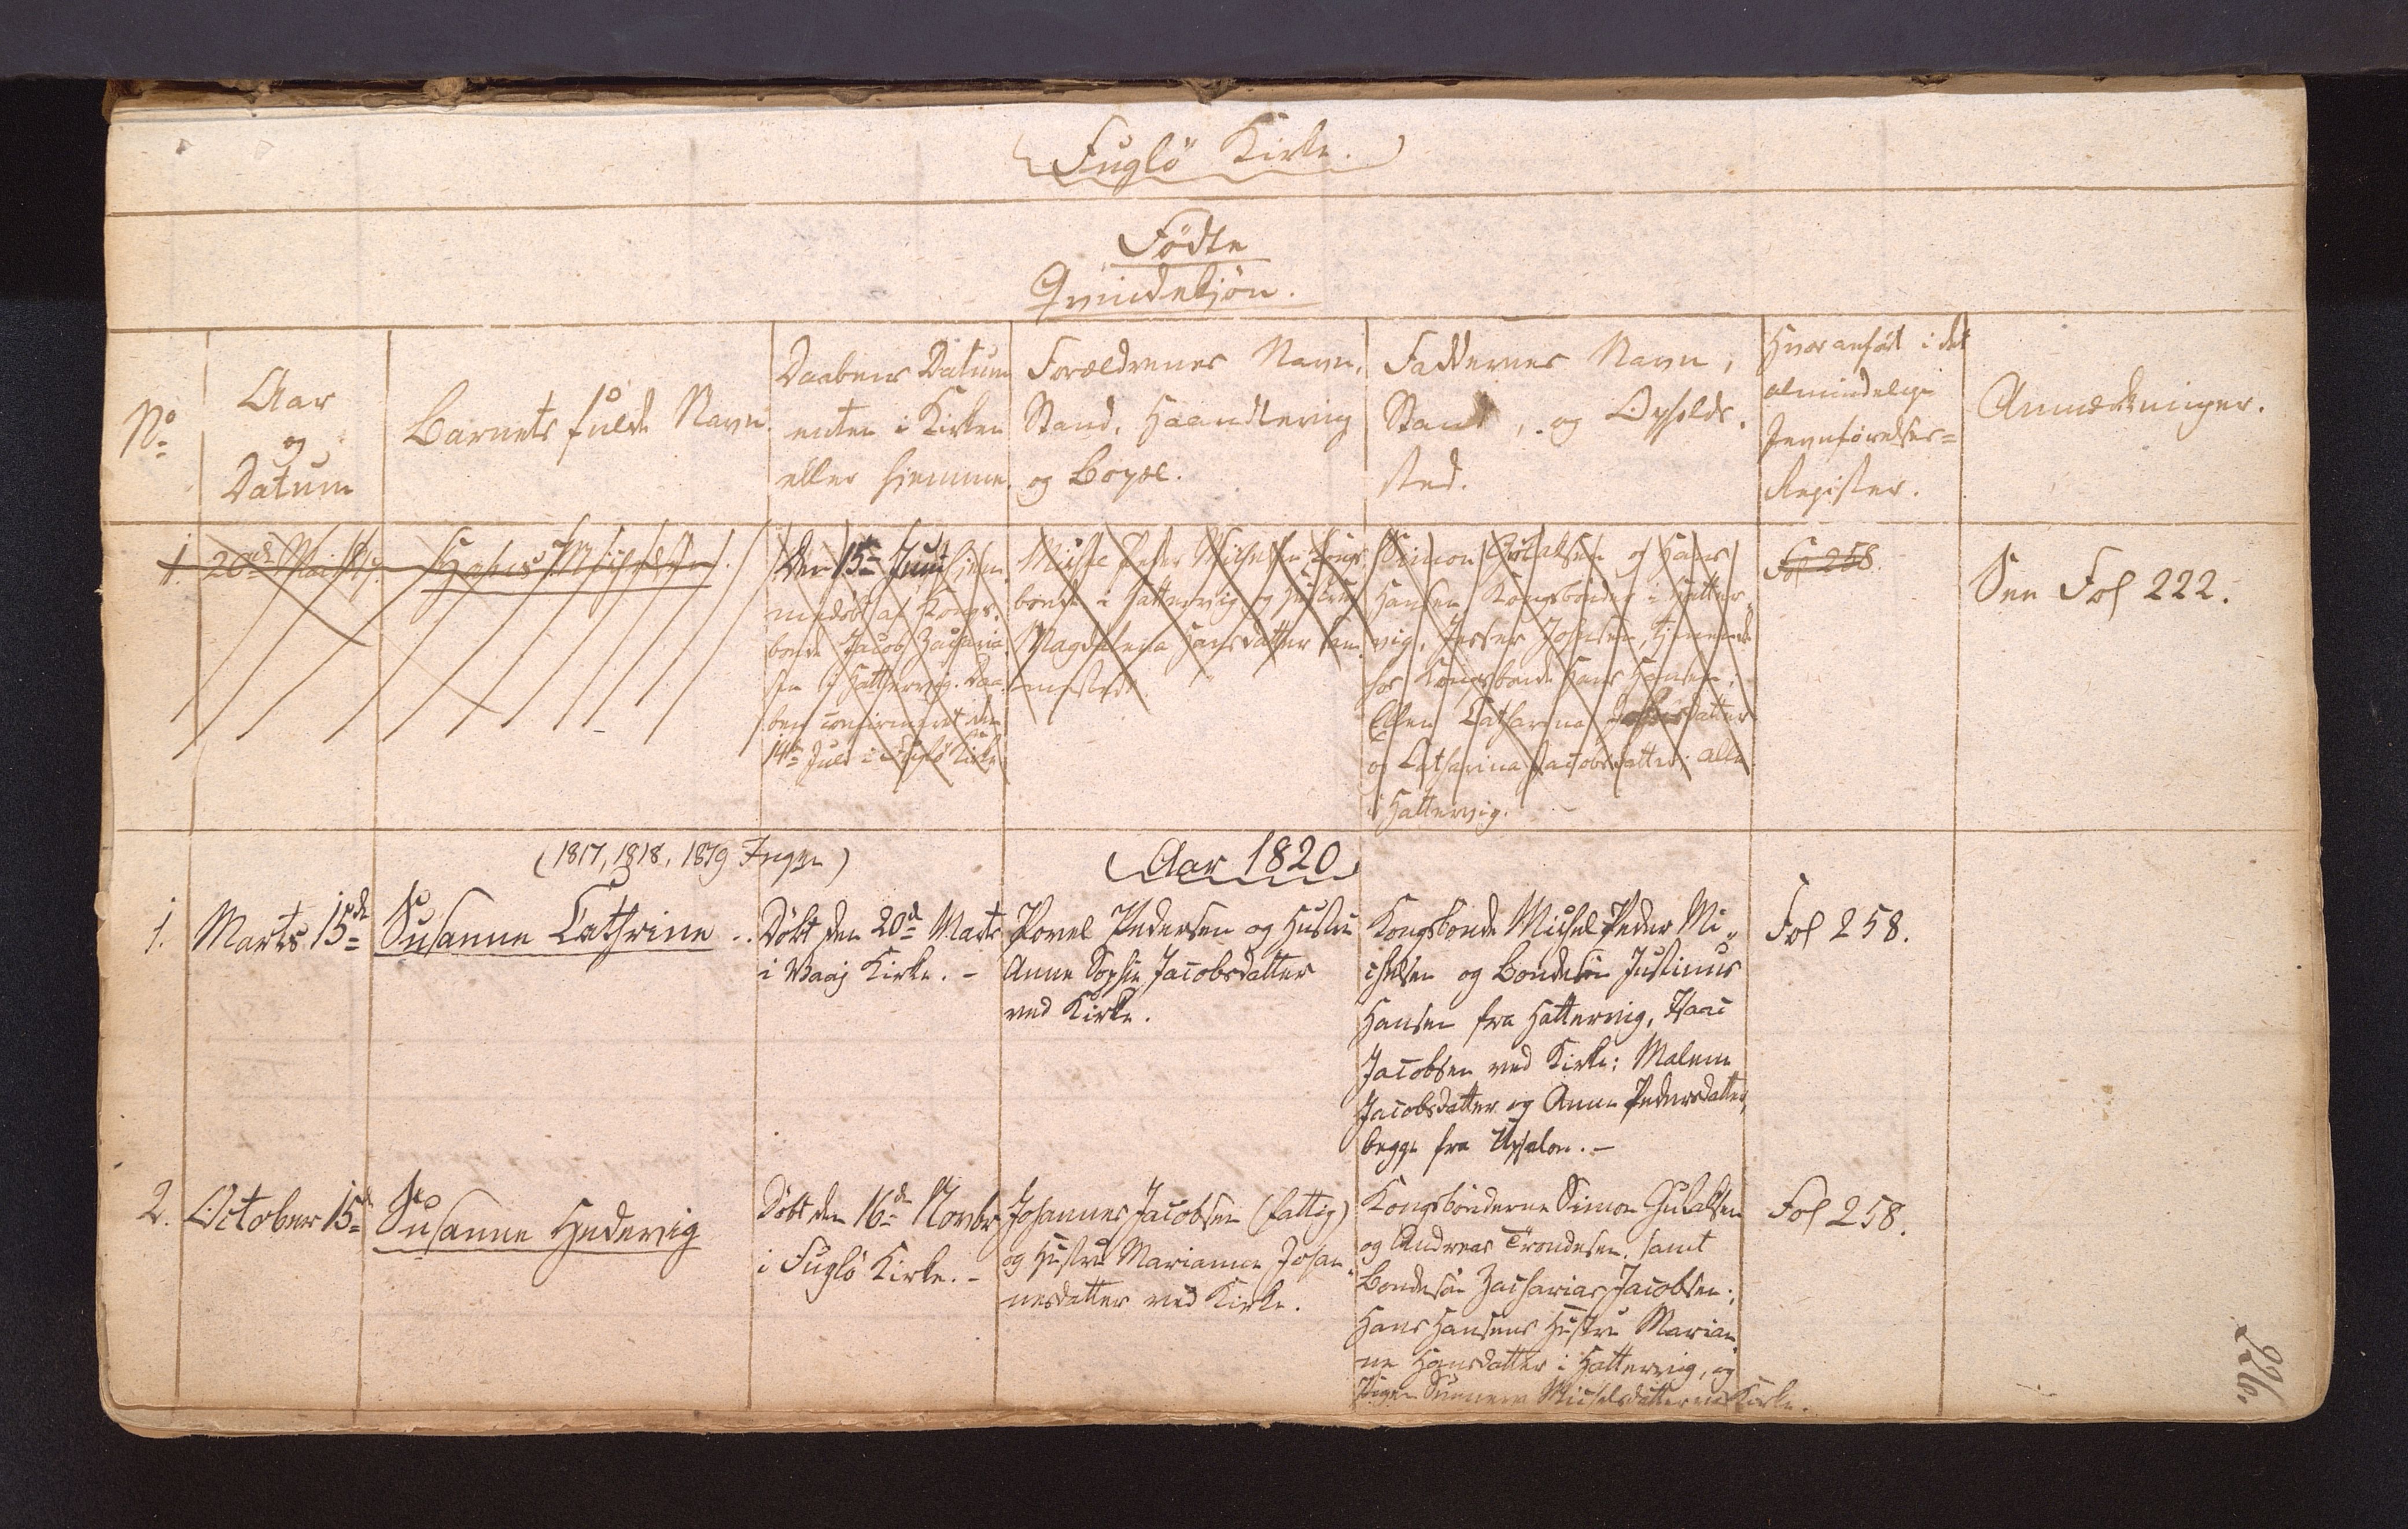 Fuglö Kirke.
Födte
Qvindekjön.
No
Aar
og
Datum
Barnets fulde Navn.
Daabens Datum
enten i Kirken
eller hjemme.
Forældrenes Navn,
Stand, Haandtering
og Bopæl.
Faddernes Navn,
Stand, og Opholds-
sted.
Hvor anfört i det
almindelige
Jevnförelses-
Register.
Anmærkninger.
1.
20de Mai
Hans Michelsen.
den 15de Juni hjem-
medöbt af Kongs-
bonde Jacob Zacharia-
sen i Hattervig. Daa-
ben confirmeret den
14de Juli i Fuglö Kirke
Michel Peder Michelsen Kongs-
bonde i Hattervig og Hustru
Magdalena Hansdatter sam-
mesteds.
Simon og Hans
Hansen, Kongsbönder i Hatter-
vig, Johnsen, tjenende
hos Kongsbonde Hans Hansen;
Ellen Catharina datter
og Catharina Jacobsdatter. alle
i Hattervig.
Fol 258.
See Fol 222.
(1817, 1818, 1819 Ingen)
Aar 1820
1.
Marts 15de
Susanne Cathrine
Döbt den 20de Marts
i Vaag Kirke.
Povel Pedersen og Hustru
Anne Sophie Jacobsdatter
ved Kirke.
Kongsbonde Michel Peder Mi-
chelsen og Bondesön Justinus
Hansen fra Hattervig, Isaac
Jacobsen ved Kirke; Malene
Jacobsdatter og Anne Pedersdatter,
begge fra Upsalon.
Fol 258.
2.
October 15de
Susanne Hedevig
Döbt den 16de Novbr
i Fuglö Kirke.
Johannes Jacobsen (fattig)
og Hustru Marianne Johan-
nesdatter ved Kirke.
Kongsbönderne Simon
og Andreas Trondesen, samt
Bondesön Zacharias Jacobsen;
Hans Hansens Hustru Marian-
ne Hansdatter i Hattervig, og
Pigen Sunneva Michelsdatter ved Kirke.
Fol 258.
226.